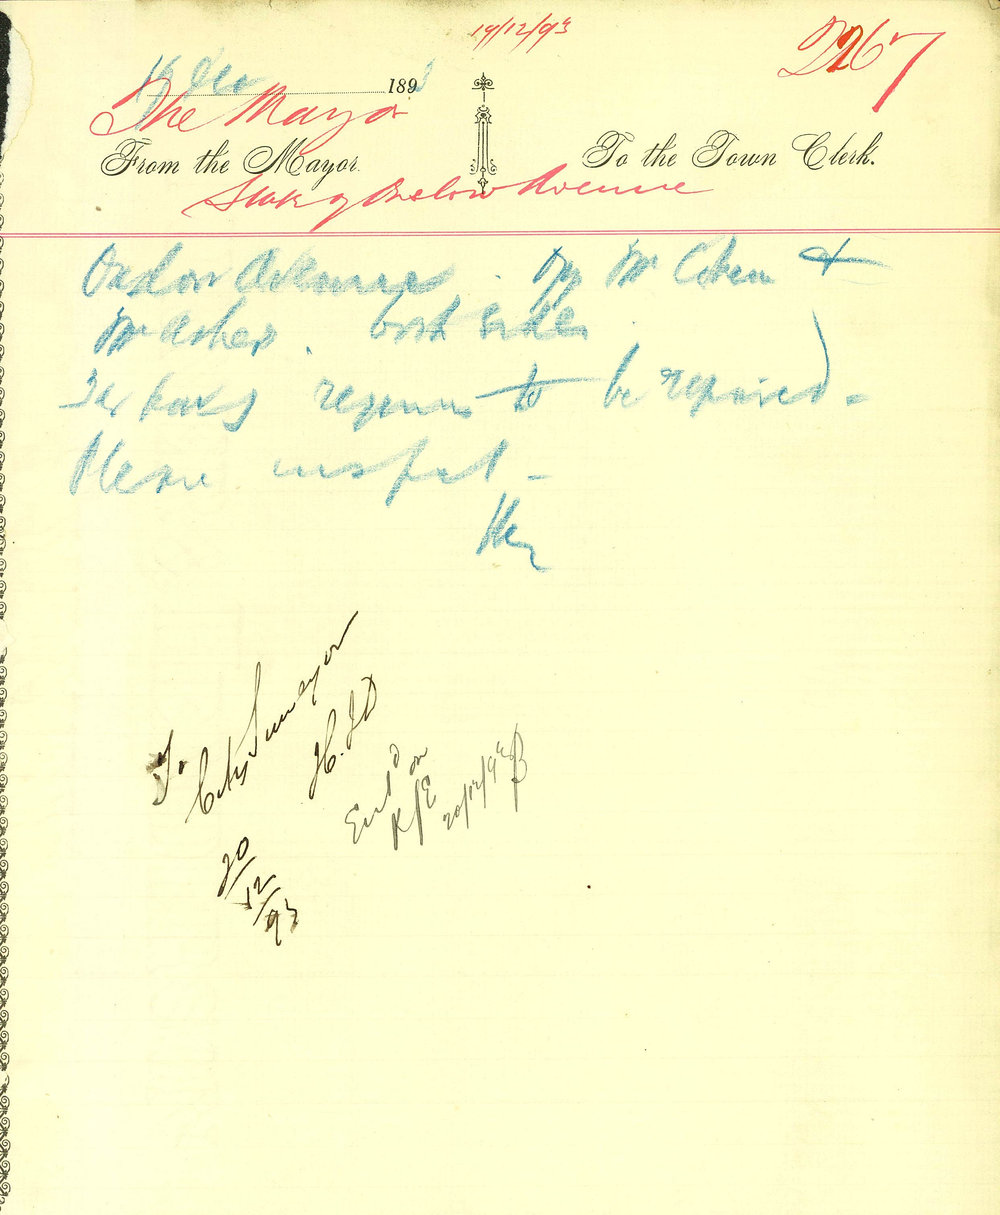 19/12/93
2267
19 Dec 1893
The Mayor
From the Mayor. To the Town Clerk.
State of Onslow Avenue
Onslow Avenue. Mr Cohen &
Mr Asher. both sides.
Tar paving requires to be repaired -
Please inspect -
To
City Surveyor
H.J.D
20/12/93
Ent'd on
20/12/93